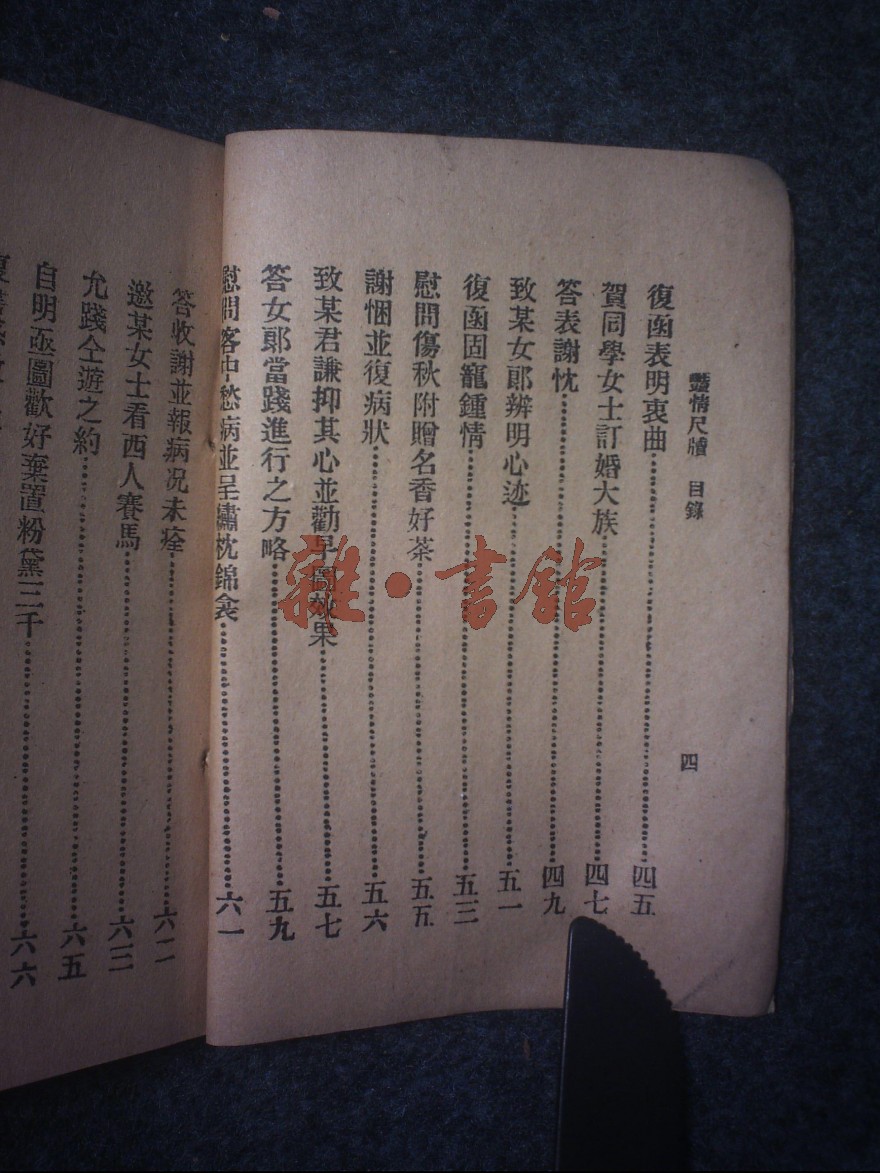 豔情尺牘 目錄
四
復函表明衷曲 四五
賀同學女士訂婚大族 四七
答表謝忱 四九
致某女郎辨明心迹 五一
復函固寵鍾情 五三
慰問傷秋附贈名香好茶 五五
謝悃並復病狀 五六
致某君謙抑其心並勸早圖效果 五七
答女郎當踐進行之方略 五九
慰問客中愁病並呈繡枕錦衾 六一
答收謝並報病况未痊 六二
邀某女士看西人賽馬 六三
允踐仝遊之約 六五
自明亟圖歡好棄置粉黛三千 六六
雜·書館